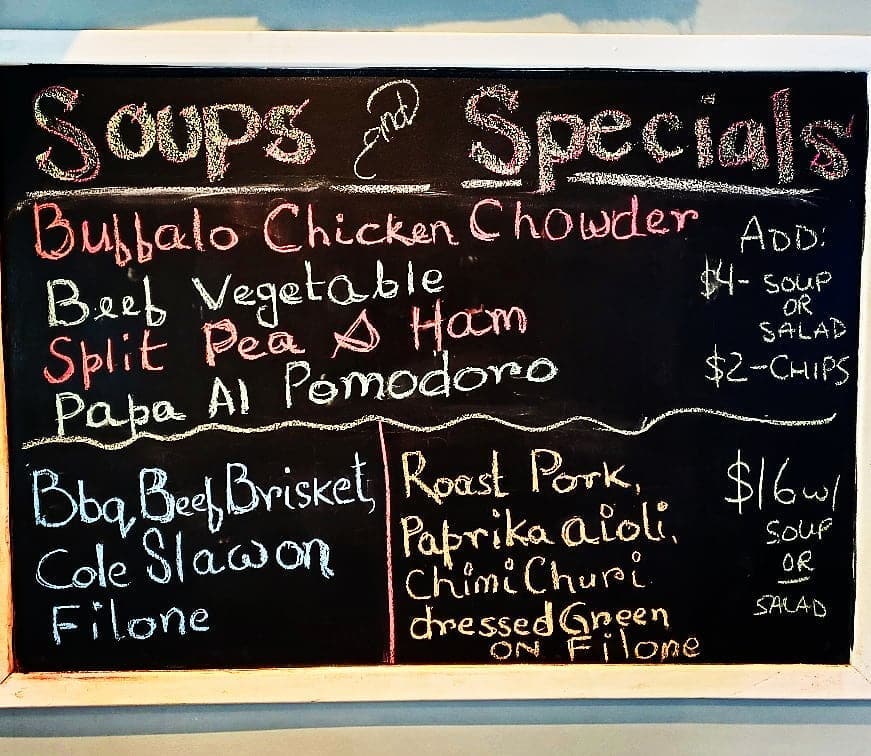 Soups and Specials
Buffalo Chicken Chowder
Beef Vegetable
Split Pea & Ham
Papa Al Pomodoro
ADD:
$4- SOUP
OR
SALAD
$2-CHIPS
Bbq Beef Brisket,
Cole Slaw on
Filone
Roast Pork,
Paprika aioli,
Chimi Churi
dressed Green
ON Filone
$16 w/
SOUP
OR
SALAD